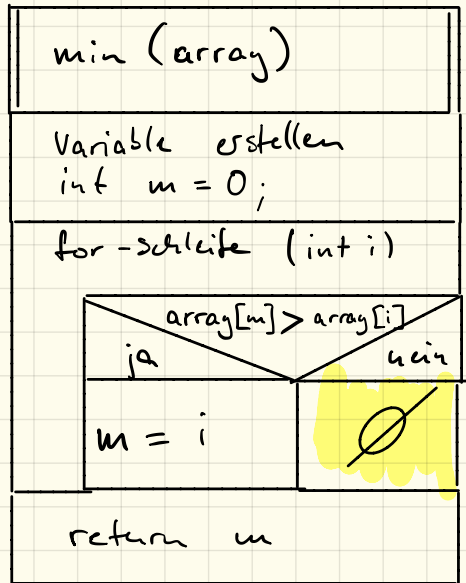 min (array)
Variable erstellen
int m = 0;
for-schleife (int i)
array[m] > array[i]
ja
nein
m = i
∅
return m